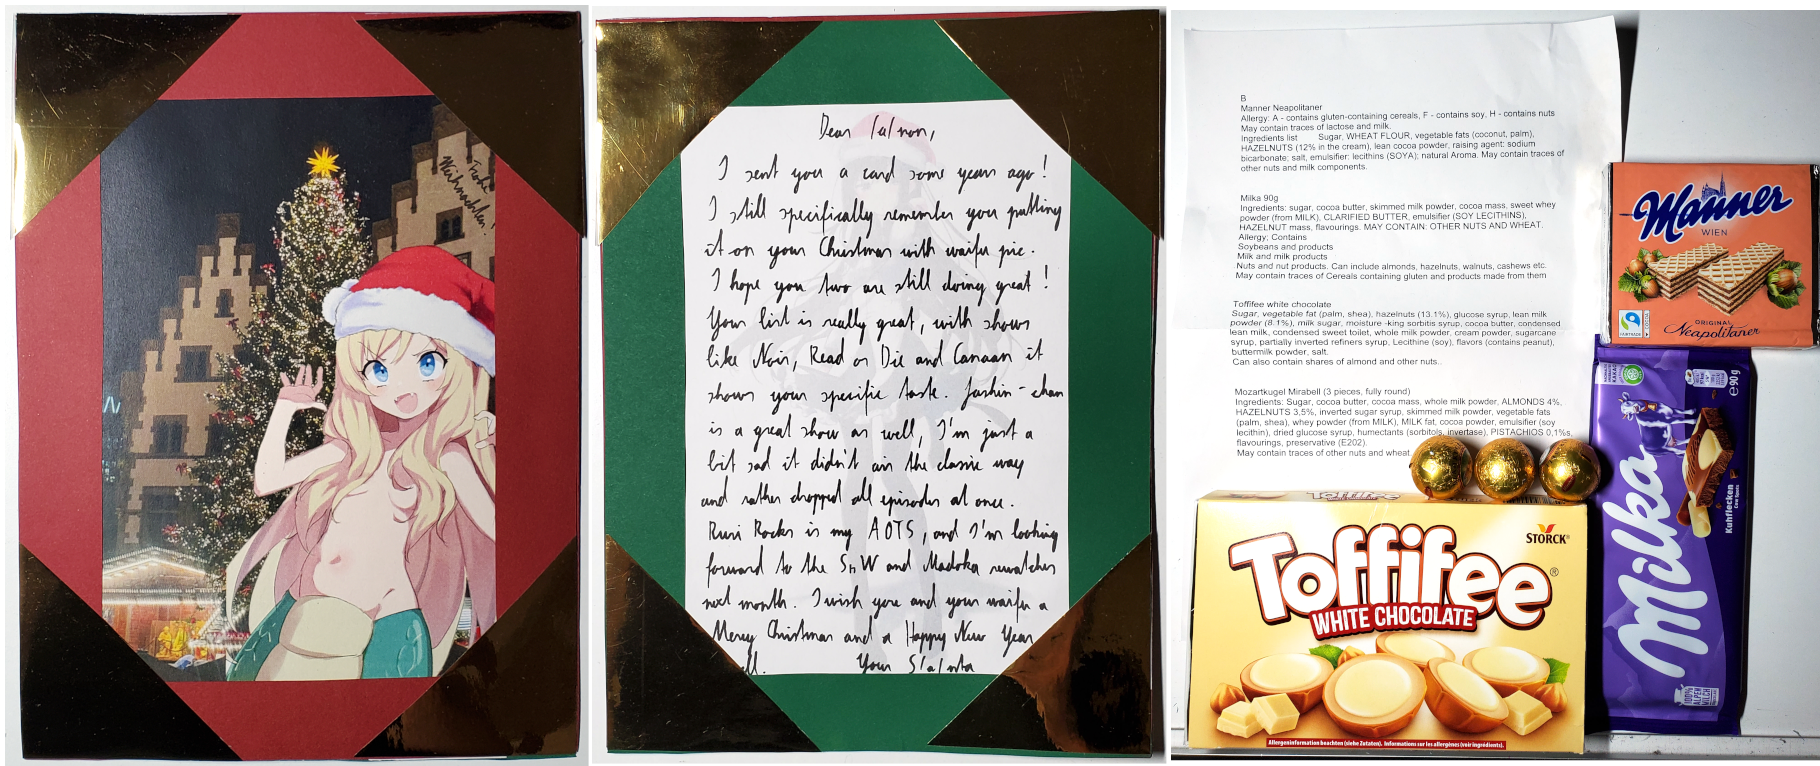 Frohe
Weihnachten!
Dear /a/non,
I sent you a card some years ago!
I still specifically remember you putting
it on your Christmas with waifu pic.
I hope you two are still doing great!
Your list is really great, with shows
like Noir, Read or Die and Canaan it
shows your specific taste. Jashin-chan
is a great show as well, I'm just a
bit sad it didn't air the classic way
and rather dropped all episodes at once.
Ruri Rocks is my AOTS, and I'm looking
forward to the SnW and Madoka rewatches
next month. I wish you and your waifu a
Merry Christmas and a Happy New Year
Your S/a/nta
B
Manner Neapolitaner
Allergy: A - contains gluten-containing cereals, F - contains soy, H - contains nuts
May contain traces of lactose and milk.
Ingredients list Sugar, WHEAT FLOUR, vegetable fats (coconut, palm),
HAZELNUTS (12% in the cream), lean cocoa powder, raising agent: sodium
bicarbonate; salt, emulsifier: lecithins (SOYA); natural Aroma. May contain traces of
other nuts and milk components.
Milka 90g
Ingredients: sugar, cocoa butter, skimmed milk powder, cocoa mass, sweet whey
powder (from MILK), CLARIFIED BUTTER, emulsifier (SOY LECITHINS),
HAZELNUT mass, flavourings. MAY CONTAIN: OTHER NUTS AND WHEAT.
Allergy; Contains
Soybeans and products
Milk and milk products
Nuts and nut products. Can include almonds, hazelnuts, walnuts, cashews etc.
May contain traces of Cereals containing gluten and products made from them
Toffifee white chocolate
Sugar, vegetable fat (palm, shea), hazelnuts (13.1%), glucose syrup, lean milk
powder (8.1%), milk sugar, moisture -king sorbitis syrup, cocoa butter, condensed
lean milk, condensed sweet toilet, whole milk powder, cream powder, sugarcane
syrup, partially inverted refiners syrup, Lecithine (soy), flavors (contains peanut),
buttermilk powder, salt.
Can also contain shares of almond and other nuts..
Mozartkugel Mirabell (3 pieces, fully round)
Ingredients: Sugar, cocoa butter, cocoa mass, whole milk powder, ALMONDS 4%,
HAZELNUTS 3,5%, inverted sugar syrup, skimmed milk powder, vegetable fats
(palm, shea), whey powder (from MILK), MILK fat, cocoa powder, emulsifier (soy
lecithin), dried glucose syrup, humectants (sorbitols, invertase), PISTACHIOS 0,1%,
flavourings, preservative (E202).
May contain traces of other nuts and wheat.
Manner
WIEN
FAIRTRADE
ORIGINAL
Neapolitaner
Milka
℮90g
Kuhflecken
100%
ALPEN
MILCH
Toffifee
STORCK®
Toffifee®
WHITE CHOCOLATE
Allergeninformation beachten (siehe Zutaten). Informations sur les allergènes (voir ingrédients).